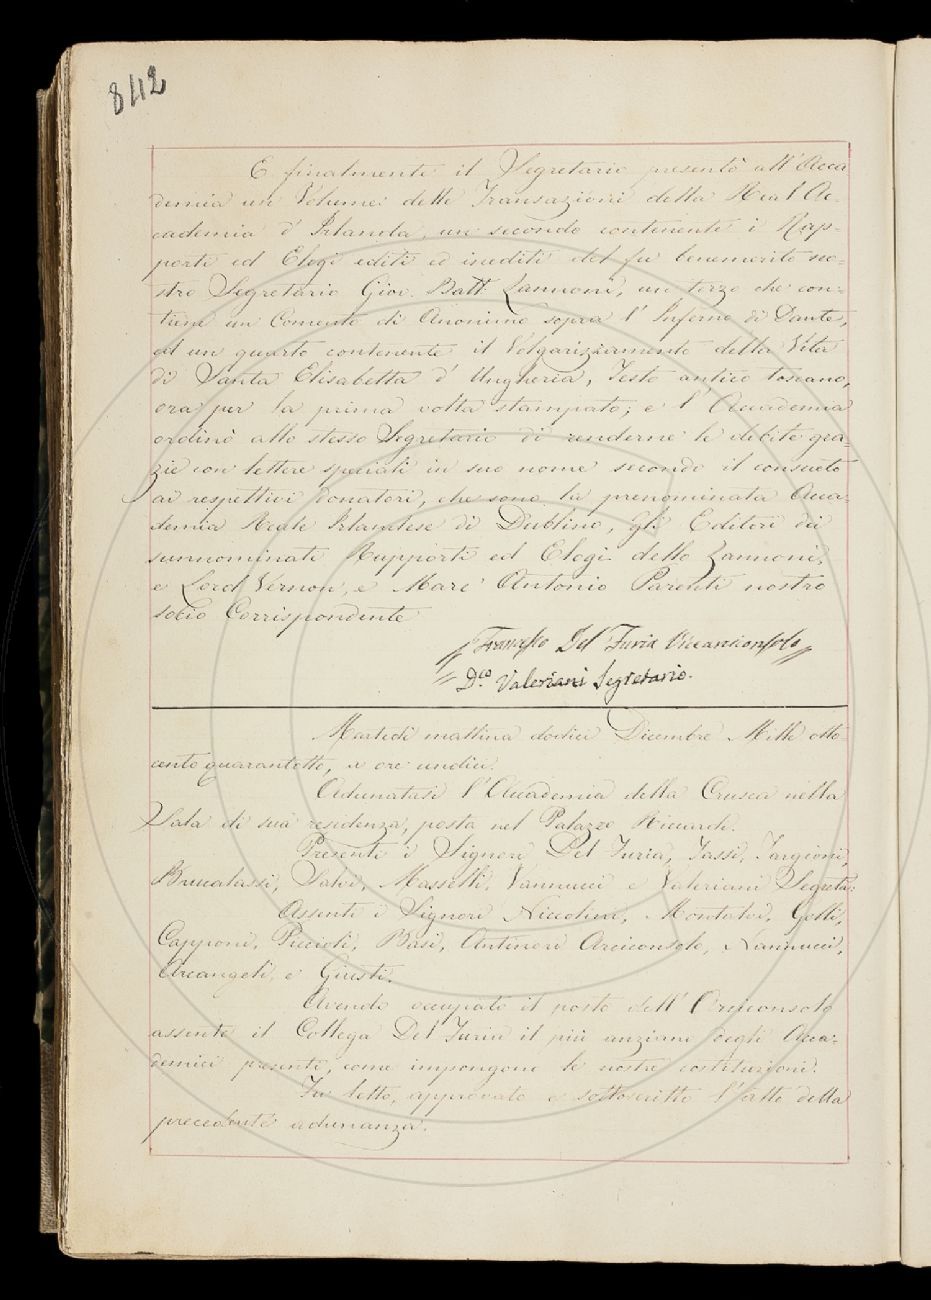 842
E finalmente il Segretario presentò all'Acca
demia un Volume delle Transazioni della Real Ac-
cademia d'Irlanda, un secondo contenente i Rap-
porti ed Elogi editi ed inediti del fu benemerito no-
stro Segretario Giov. Batt. Zannoni, un terzo che con-
tiene un Comento di Anonimo sopra l'Inferno di Dante,
ed un quarto contenente il Volgarizzamento della Vita
di Santa Elisabetta d'Ungheria, Testo antico toscano,
ora per la prima volta stampato; e l'Accademia
ordinò allo stesso Segretario di renderne le debite gra-
zie con lettere speciali in suo nome secondo il consueto
ai respettivi donatori, che sono la prenominata Acca-
demia Reale Irlandese di Dublino, gli Editori dei
sunnominati Rapporti ed Elogi dello Zannoni,
e Lord Vernon, e Marc'Antonio Parenti nostro
socio Corrispondente
Francesco Del Furia Vicearciconsolo
Dco. Valeriani Segretario.
Martedì mattina dodici Dicembre Mille otto-
cento quarantotto, a ore undici.
Adunatasi l'Accademia della Crusca nella
Sala di sua residenza, posta nel Palazzo Riccardi.
Presenti i Signori Del Furia, Tassi, Targioni,
Brucalassi, Salvi, Masselli, Vannucci e Valeriani Segreta:
Assenti i Signori Niccolini, Montalvi, Gelli,
Capponi, Piccioli, Basi, Antinori Arciconsolo, Nannucci,
Arcangeli, e Giusti.
Avendo occupato il posto dell'Arciconsolo
assente il Collega Del Furia il più anziano degli Acca-
demici presenti, come impongono le nostre costituzioni.
Fu letto, approvato e sottoscritto l'atto della
precedente adunanza.